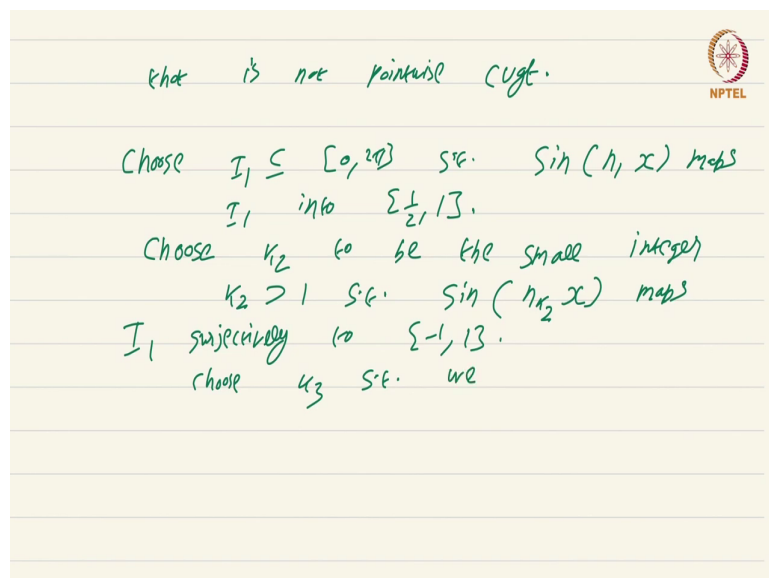 that is not pointwise cvgt.
NPTEL
Choose I₁ ⊆ [0, 2π] s.t. Sin (n₁ x) maps
I₁ into [½, 1].
Choose k₂ to be the small integer
k₂ > 1 s.t. sin (n_k₂ x) maps
I₁ surjectively to [-1, 1].
Choose k₃ s.t. we